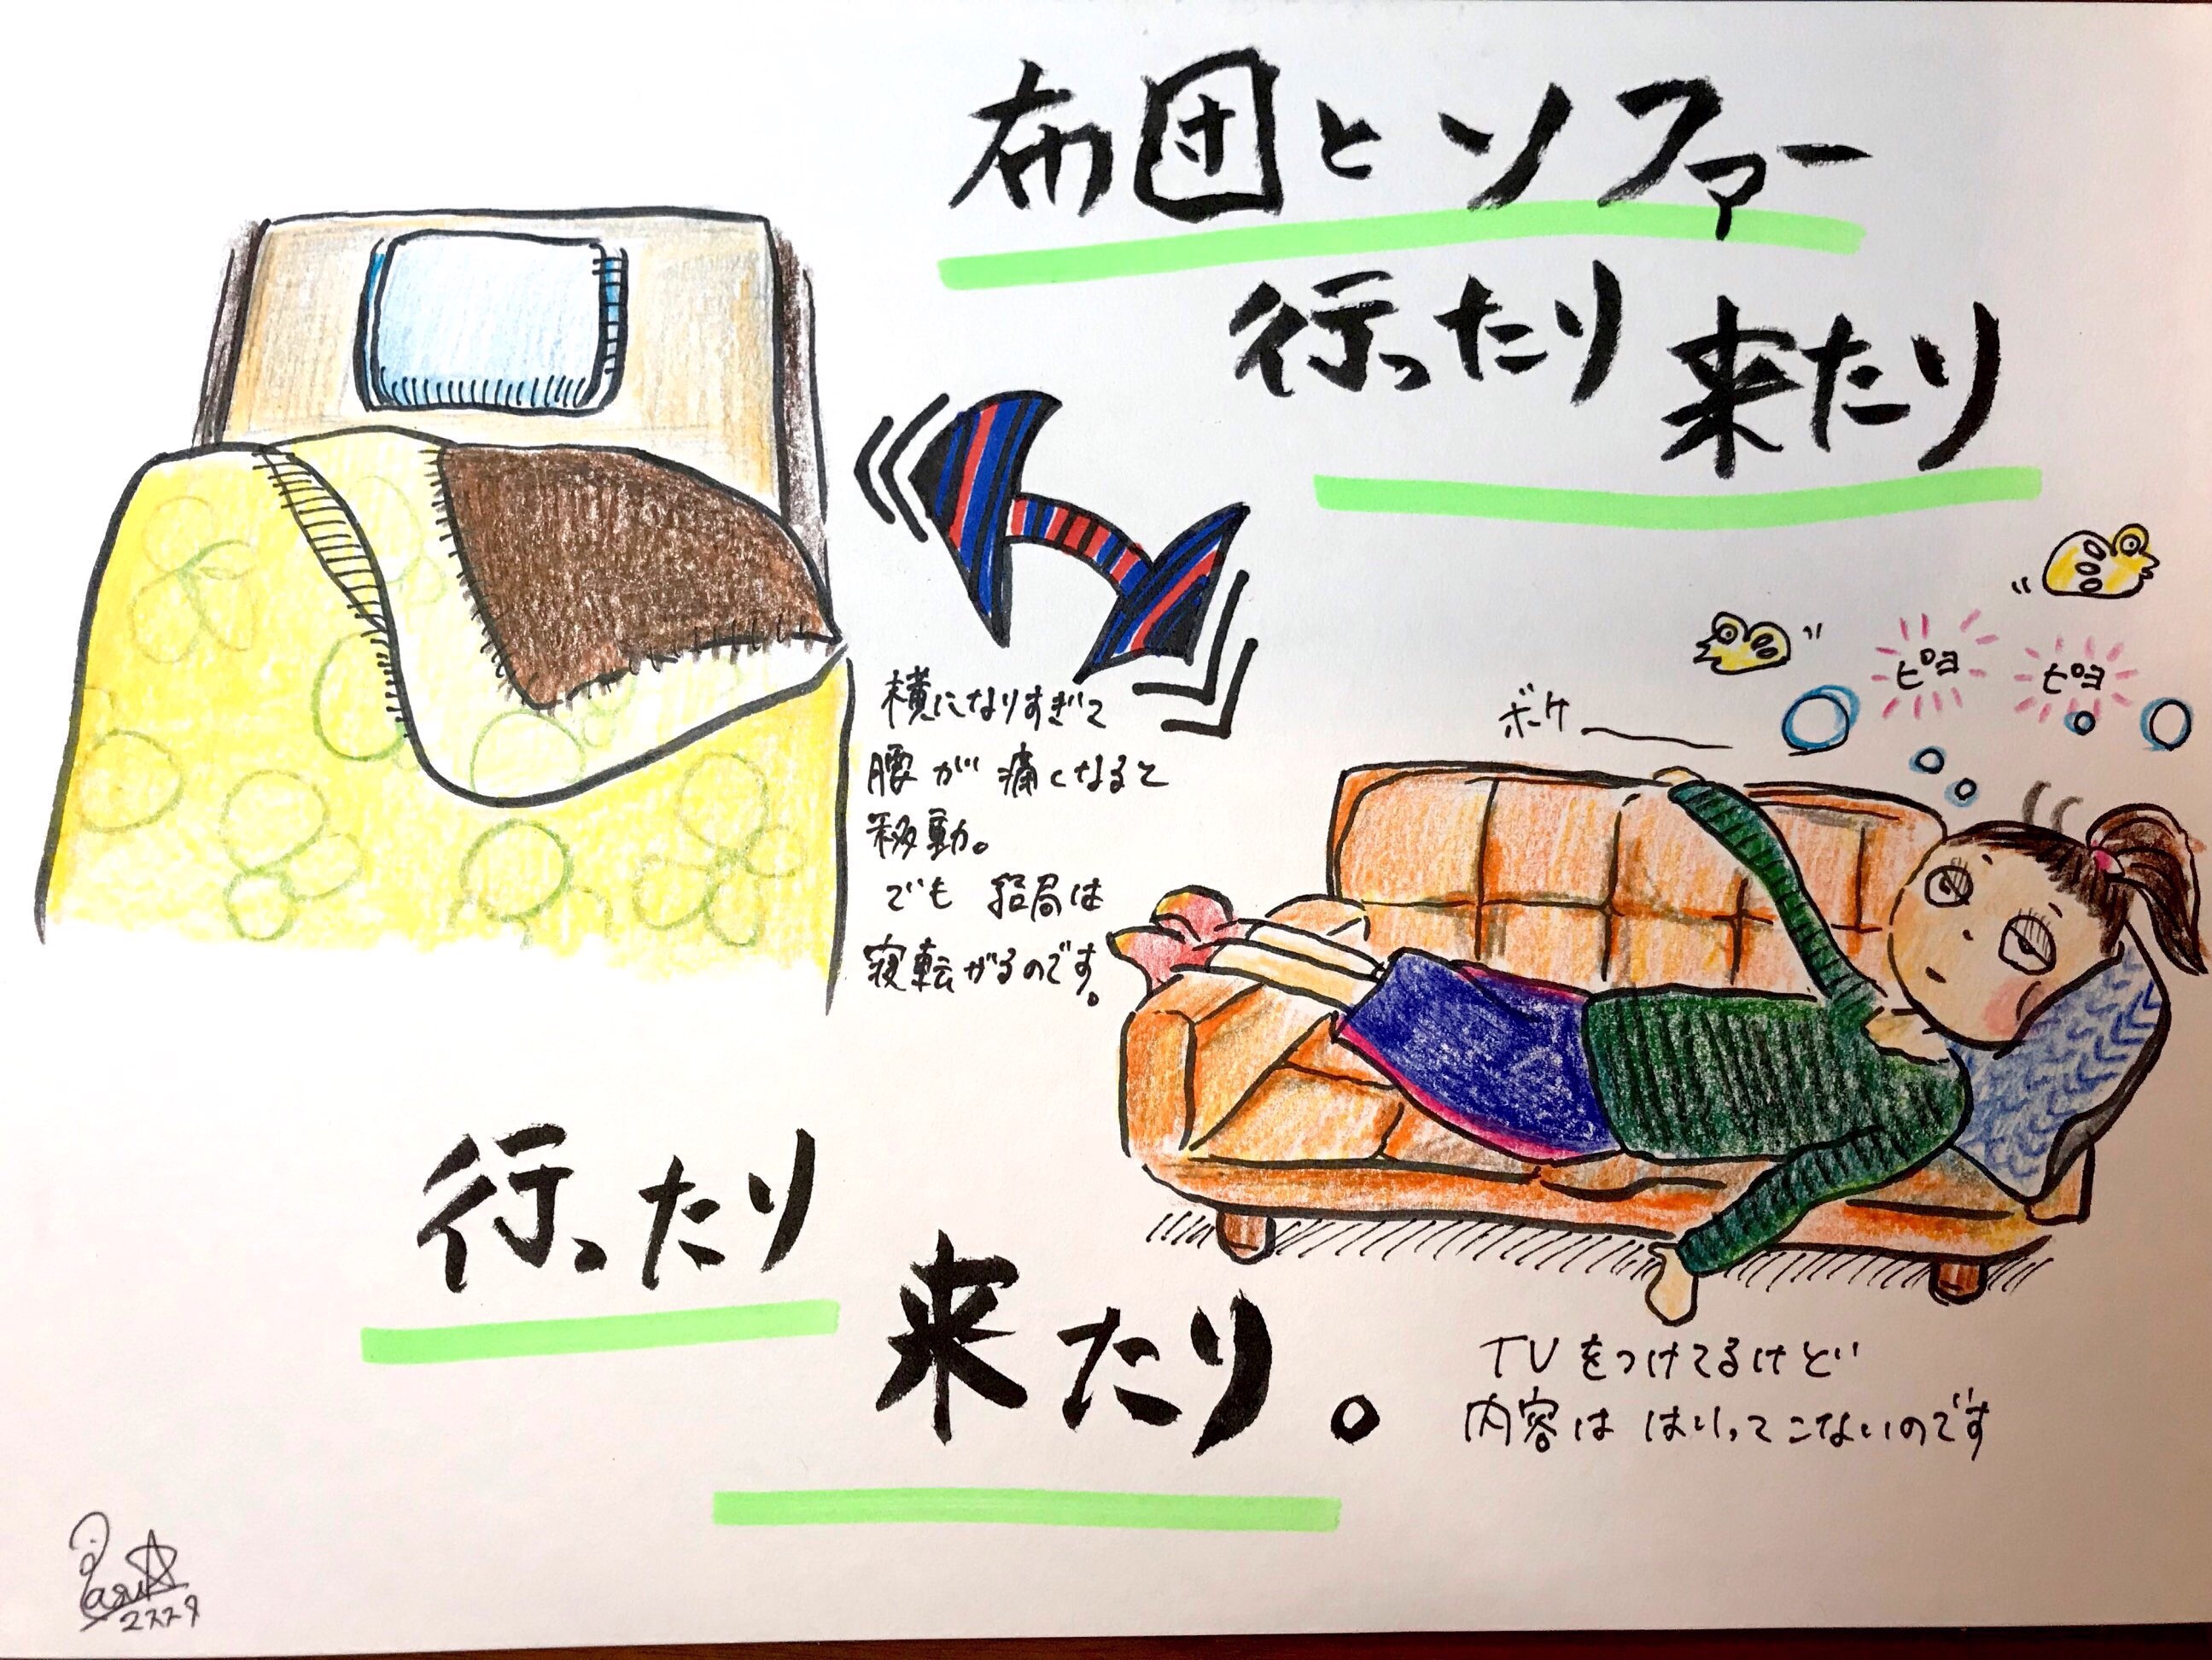 布団とソファー
行ったり来たり
横になりすぎて
腰が痛くなると
移動。
でも結局は
寝転がるのです。
ボーケ
ピヨ ピヨ
行ったり
来たり。
TVをつけてるけど
内容ははいってこないのです